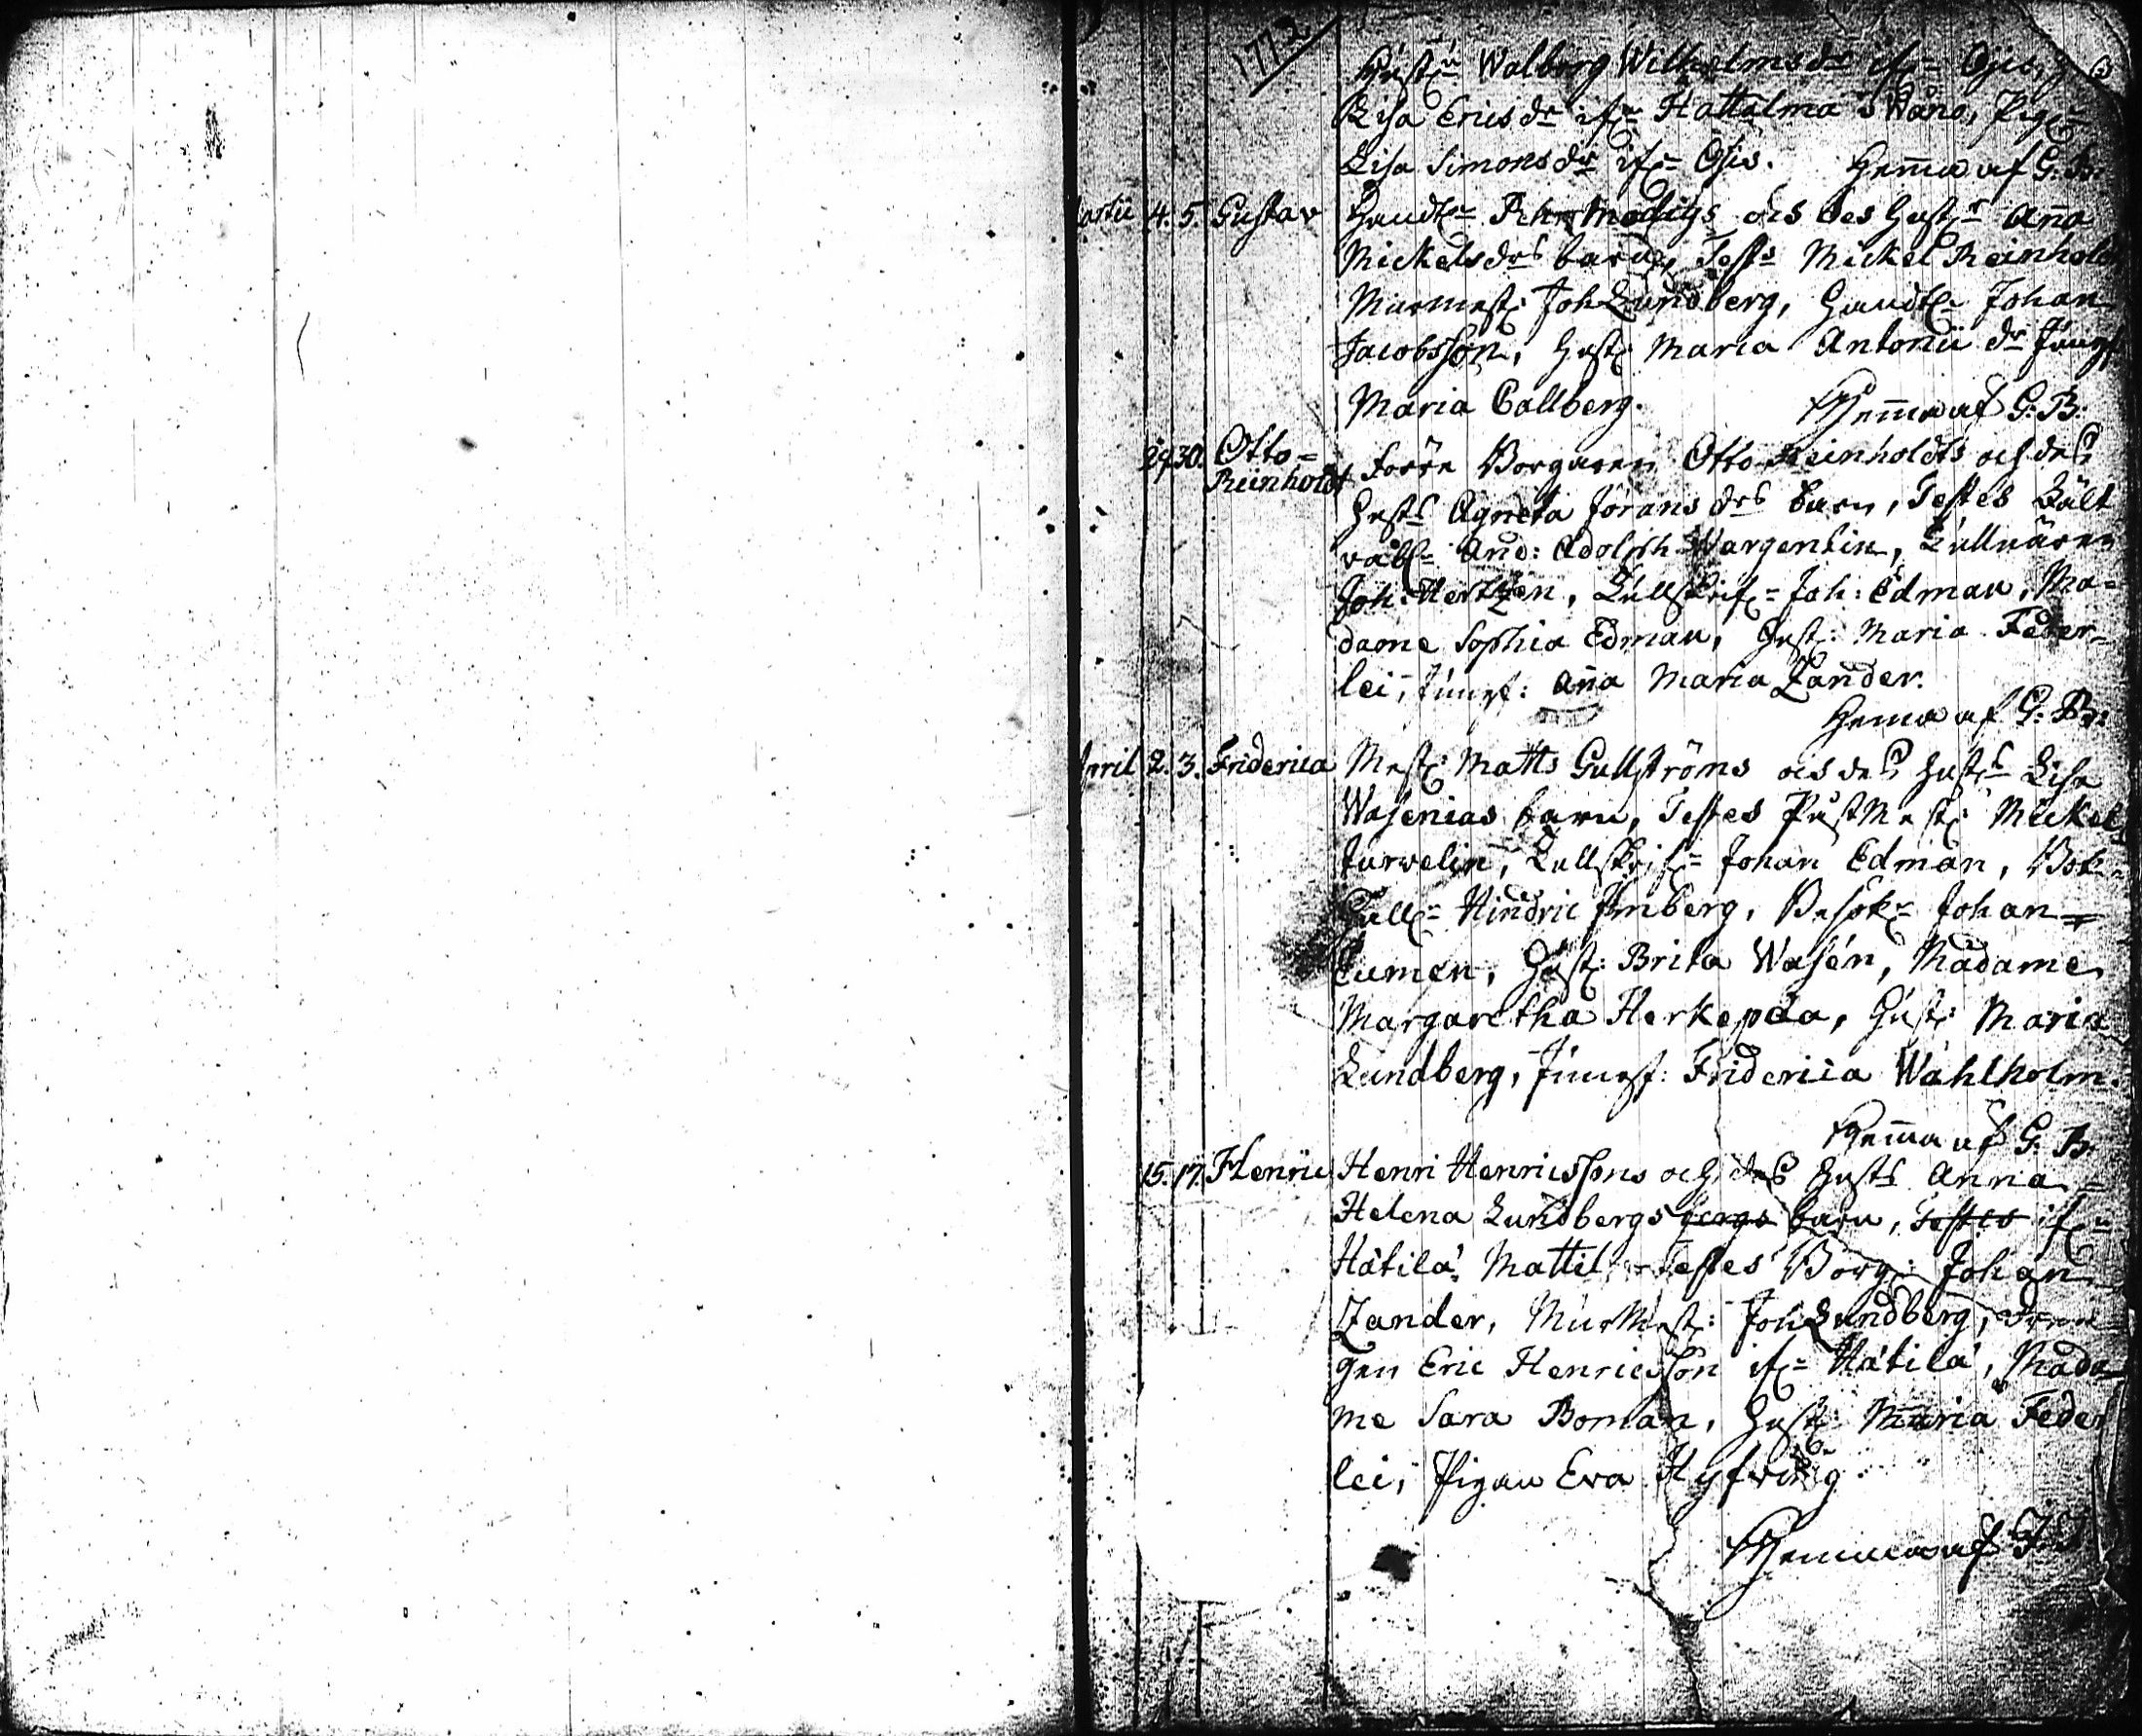 1772
3
Hust:n Walborg Wilhelmsdr if:n Ojis,
Lisa Ericsdr if:n Hattalma Wäno, Pig:n
Lisa Simonsdr if:n Ojis. Hemma af G: B:
Martii 4. 5. Gustav Handl:n Pehr Modigs och des Hust:s Anna
Mickelsdrs barn, Test:s Mickel Reinholdt
Murmest: Joh Lundberg, Handl:n Johan
Jacobsson, Hust: Maria Antonii dr Jungf
Maria Callberg. Hemma af G: B:
29. 30. Otto= Reinholdt Förre Borgaren Otto Reinholdts och des
Hust:s Agneta Jörans drs barn, Testes
And: Adolph Wargentin, Tullnären
Joh: Hertzen, Tullskrif:n Joh: Edman, Ma=
dame Sophia Edman, Hust: Maria Feder=
lei, Jungf: Anna Maria Zander.
Hemma af G: B:
April 2. 3. Friderica Mest: Matts Gullströms och des Hust:s Lisa
Wasenias barn, Testes PostMest: Mickel
Jurvelin, Tullskrif:n Johan Edman, Bok=
Hall:n Hindric Imberg, Besök:n Johan=
Eumen, Hust: Brita Wasén, Madame
Margaretha Herkepæa, Hust: Maria
Lundberg, Jungf: Friderica Wahlholm.
Hemma af G: B:
15. 17. Henric Henric Henricssons och des Hust:s Anna=
Helena Lundbergs barn, Testes if:n
Hätilä Mattil Testes Borg: Johan
Zander, MurMest: Joh Lundberg, Dren=
gen Eric Henricsson if:n Hätilä, Mada=
me Sara Boman, Hust: Maria Feder
lei, Pigan Eva Hyfving
Hemma af